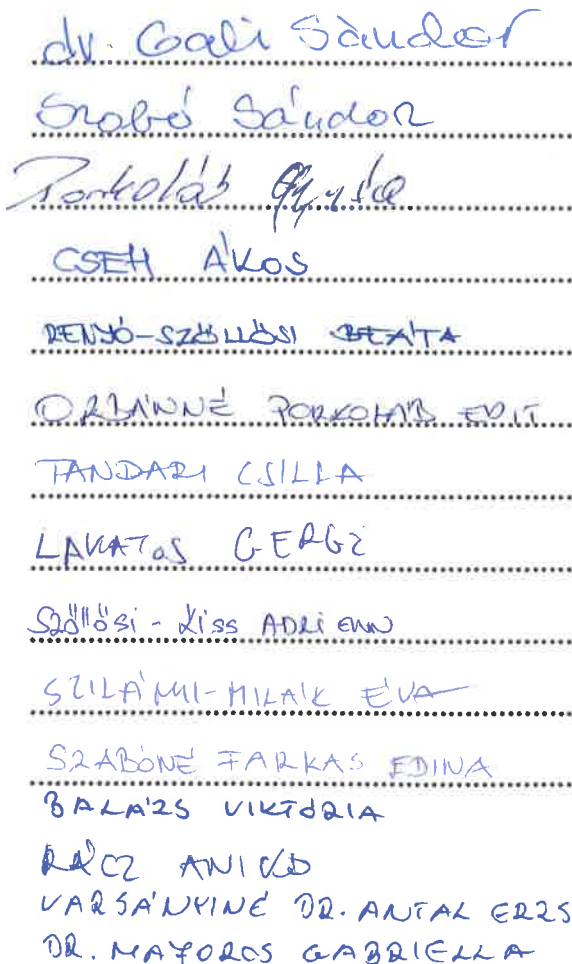 dr. Gali Sándor
Szabó Sándor
Porkoláb Gyula
CSEH ÁKOS
RENYÓ-SZŐLLŐSI BEÁTA
ORBÁNNÉ PORKOLÁB EDIT
TANDARI CSILLA
LAKATOS GERGŐ
Szőllősi - Kiss ADRIENN
SZILÁNYI-MILÁK ÉVA
SZABÓNÉ FARKAS EDINA
BALÁZS VIKTÓRIA
RÁCZ ANIKÓ
VARSÁNYINÉ DR. ANTAL ERZS
DR. MAJOROS GABRIELLA